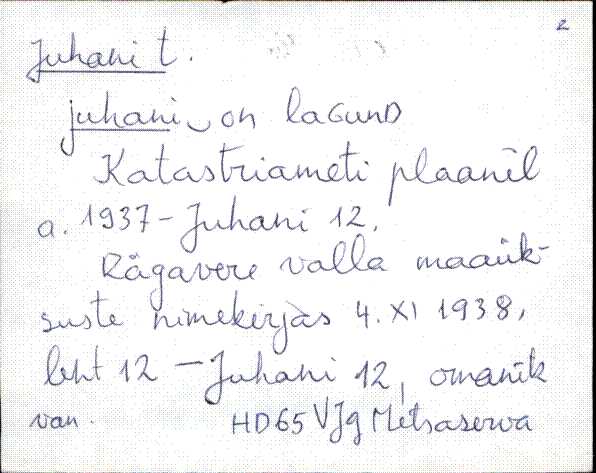 2
Juhani t.
juhani on lagunD
Katastriameti plaanil
a. 1937 - Juhani 12.
Rägavere valla maaük-
suste nimekirjas 4. XI 1938,
leht 12 - Juhani 12, omanik
van. HD65 VJg Metsaserva